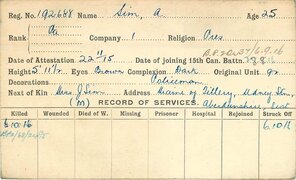 Reg. No. 192668 Name Sim, A Age 25
Rank Company 1 Religion Pres
Date of Attestation 22 11/15 Date of joining 15th Can. Battn.
Height 5' 11" Eyes Brown Complexion Dark Original Unit 92
Decorations Policeman
Next of Kin J Sim Address Mains of Tillery, Udney Stn,
(M) RECORD OF SERVICES. Aberdeenshire, Scot
Killed Wounded Died of W. Missing Prisoner Hospital Rejoined Struck Off
6.10.16 6.10.16